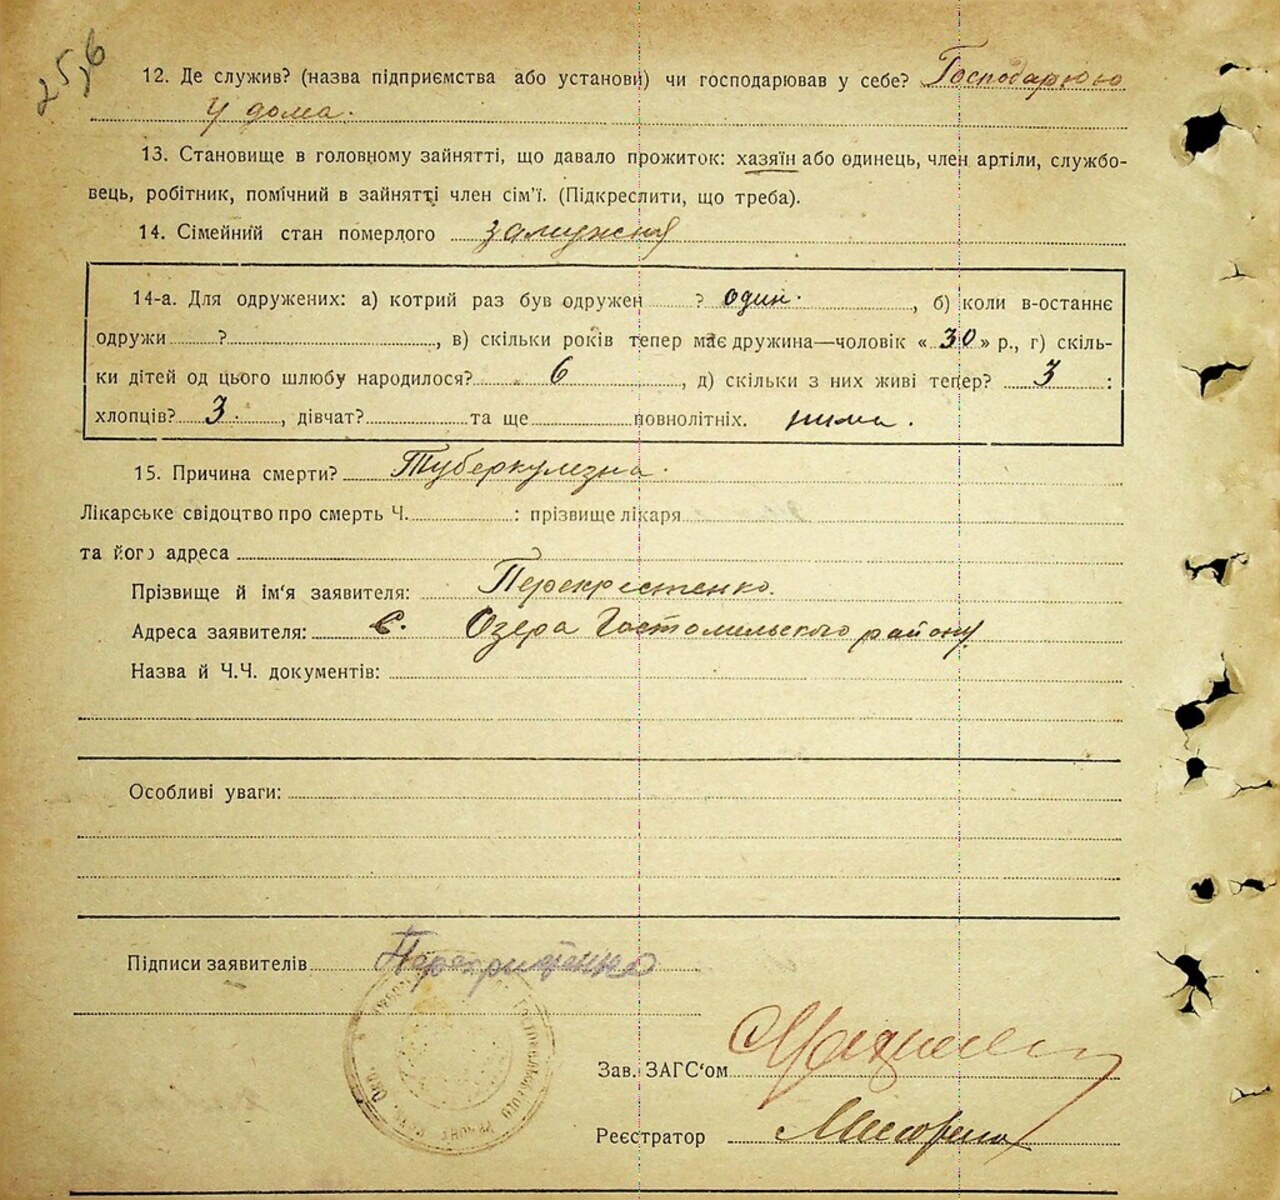 256
12. Де служив? (назва підприємства або установи) чи господарював у себе? Господарюю
у дома.
13. Становище в головному зайнятті, що давало прожиток: хазяїн або одинець, член артіли, службо-
вець, робітник, помічний в зайнятті член сім'ї. (Підкреслити, що треба).
14. Сімейний стан померлого замужня
14-а. Для одружених: а) котрий раз був одружен ? один. , б) коли в-останнє
одружи ? , в) скільки років тепер має дружина—чоловік « 30 » р., г) скіль-
ки дітей од цього шлюбу народилося? 6 , д) скільки з них живі тепер? 3 :
хлопців? 3 , дівчат? та ще повнолітніх. нима.
15. Причина смерти? Туберкулізна.
Лікарське свідоцтво про смерть Ч. : прізвище лікаря
та його адреса
Прізвище й ім'я заявителя: Перекрестенко.
Адреса заявителя: с. Озера Гостомильского району
Назва й Ч.Ч. документів:
Особливі уваги:
Підписи заявителів
Зав. ЗАГС'ом
Реєстратор